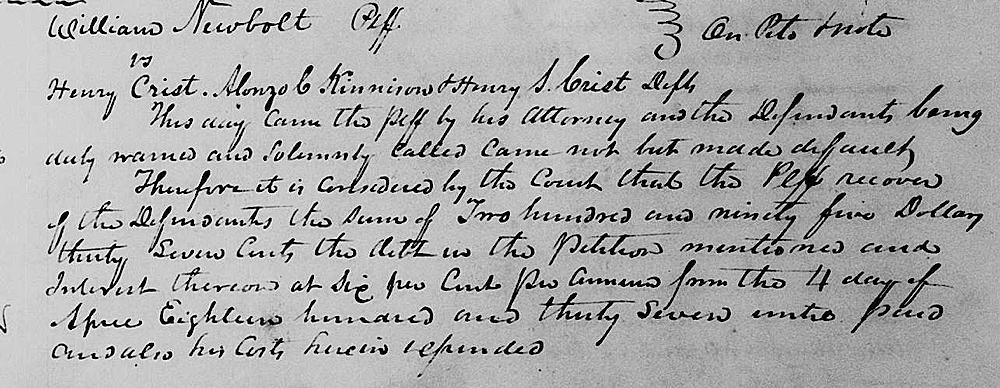 William Newbolt Plff.
On Pet. & note
vs
Henry Crist. Alonzo C Kinnison & Henry S. Crist Defts
This day came the Plff by his Attorney and the Defendants being
duly warned and Solemnly Called Came not but made default
Therefore it is Considered by the Court that the Plff recover
of the Defendants the Sum of Two hundred and ninety five Dollars
thirty Seven Cents the debt in the Petition mentioned and
Interest thereon at Six per Cent per annum from the 4 day of
April Eighteen hundred and thirty Seven until paid
and also his Costs herein expended